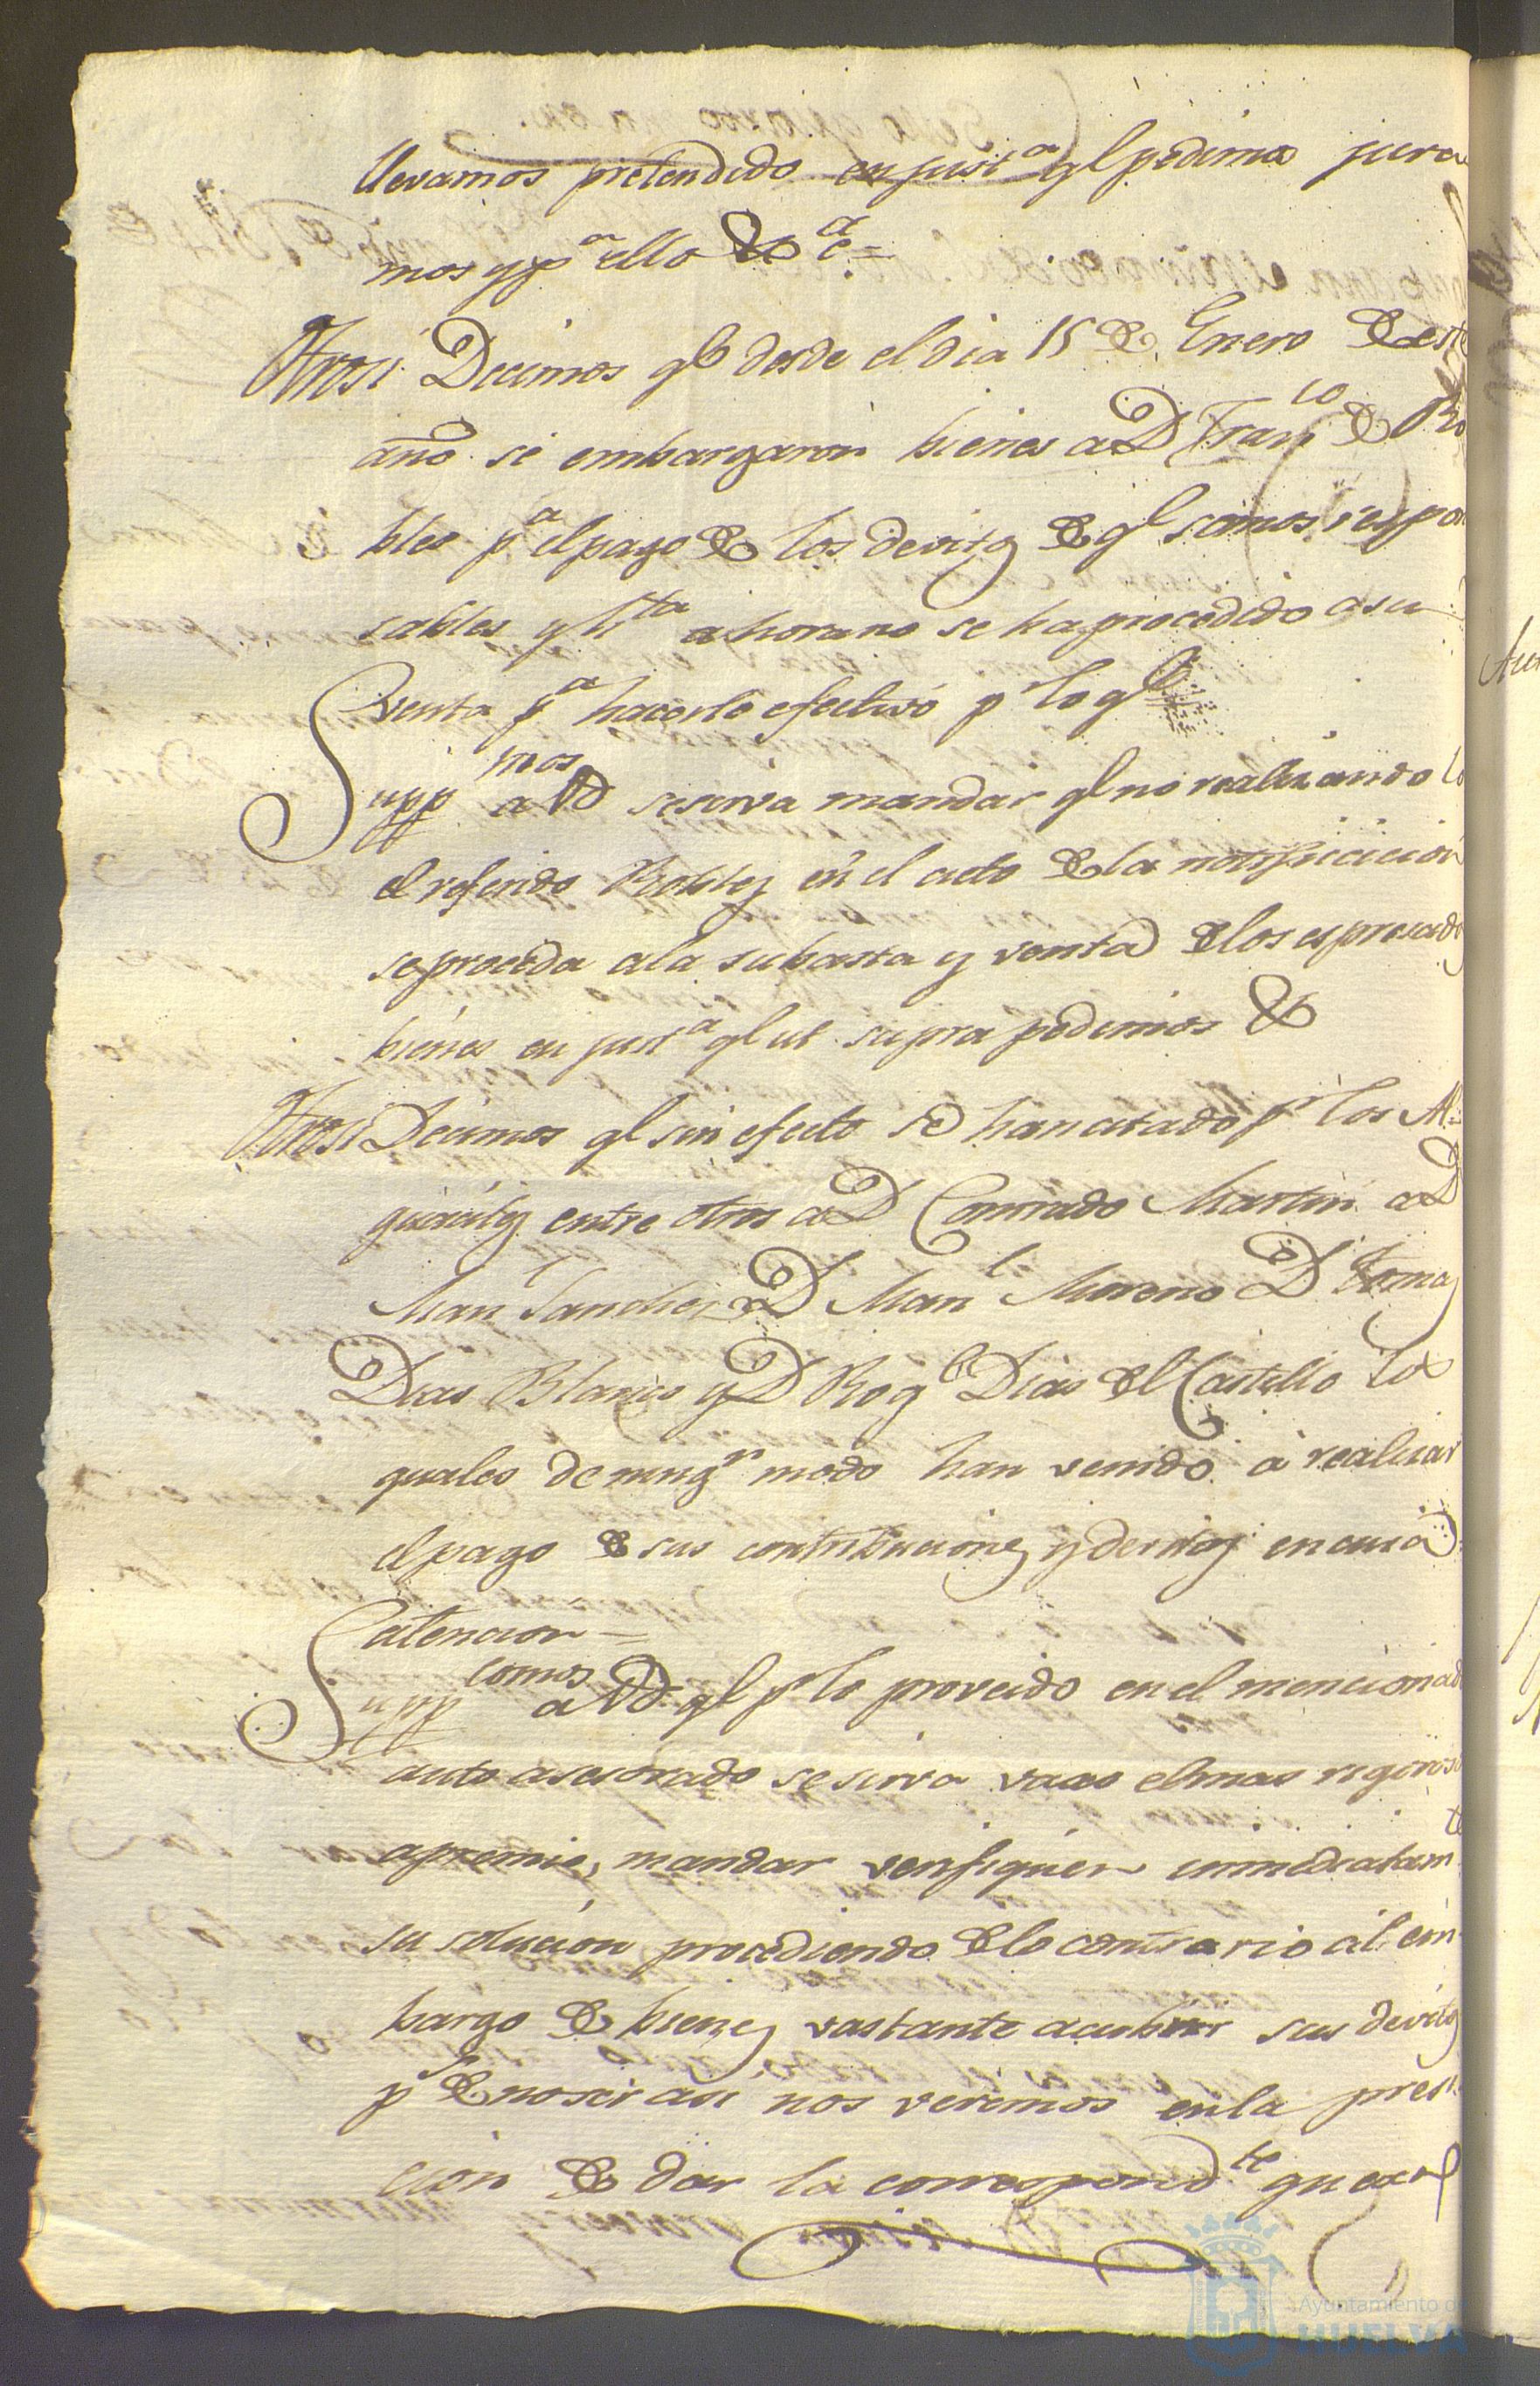 llevamos pretendido en just.ª q.e pedimos jura
mos y p.ª ello &.ª =
Otrosi Decimos q.e desde el dia 15 de Enero de este
año se embargaron bienes a D Fran.co de Ro
bles p.ª el pago de los devitos de q.e somos respon
sables y h.ta ahora no se ha procedido a su
venta p.ª hacerlo efectivo p.r lo q.e
Supp.mos a Vd se sirva mandar q.e no realizandolo
el referido Robles en el acto de la notificicion
se proceda a la subasta y venta de los espresados
bienes en just.ª q.e ut supra pedimos &
Otrosi Decimos q.e sin efecto se han citado p.r los Al
guaciles entre otros a D Conrrado Martin a D
Man.l Sanchez a D Man.l Moreno D Tomas
Dias Blanco y D Rog.o Dias del Castillo los
quales de ning.n modo han venido á realizar
el pago de sus contribuciones y devitos en cuia
atencion =
Supp.camos a Vd q.e p.r lo proveido en el mencionado
auto asesorado se sirva vaxo el mas rigoroso
apremio, mandar verifiquen inmediatam.te
su solucion procediendo de lo contrario al em
bargo de bienes vastante a cubrir sus devitos
p.s de no ser asi nos veremos en la presi
cion de dar la correspond.te quexa
Ayuntamiento de
HUELVA